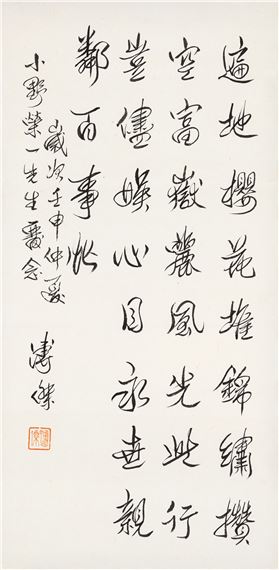 遍地櫻花堆錦繡攢
空富嶽麗風光此行
豈儘娛心目永世親
鄰百事
歲次壬申仲夏
小野榮一先生畱念
溥傑